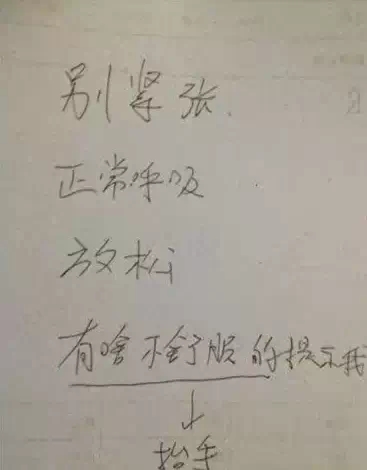 别紧张
正常呼吸
放松
有啥不舒服的提示我
↓
抬手